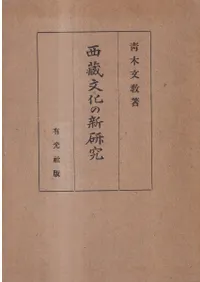 青木文教著
西藏文化の新研究
有光社版